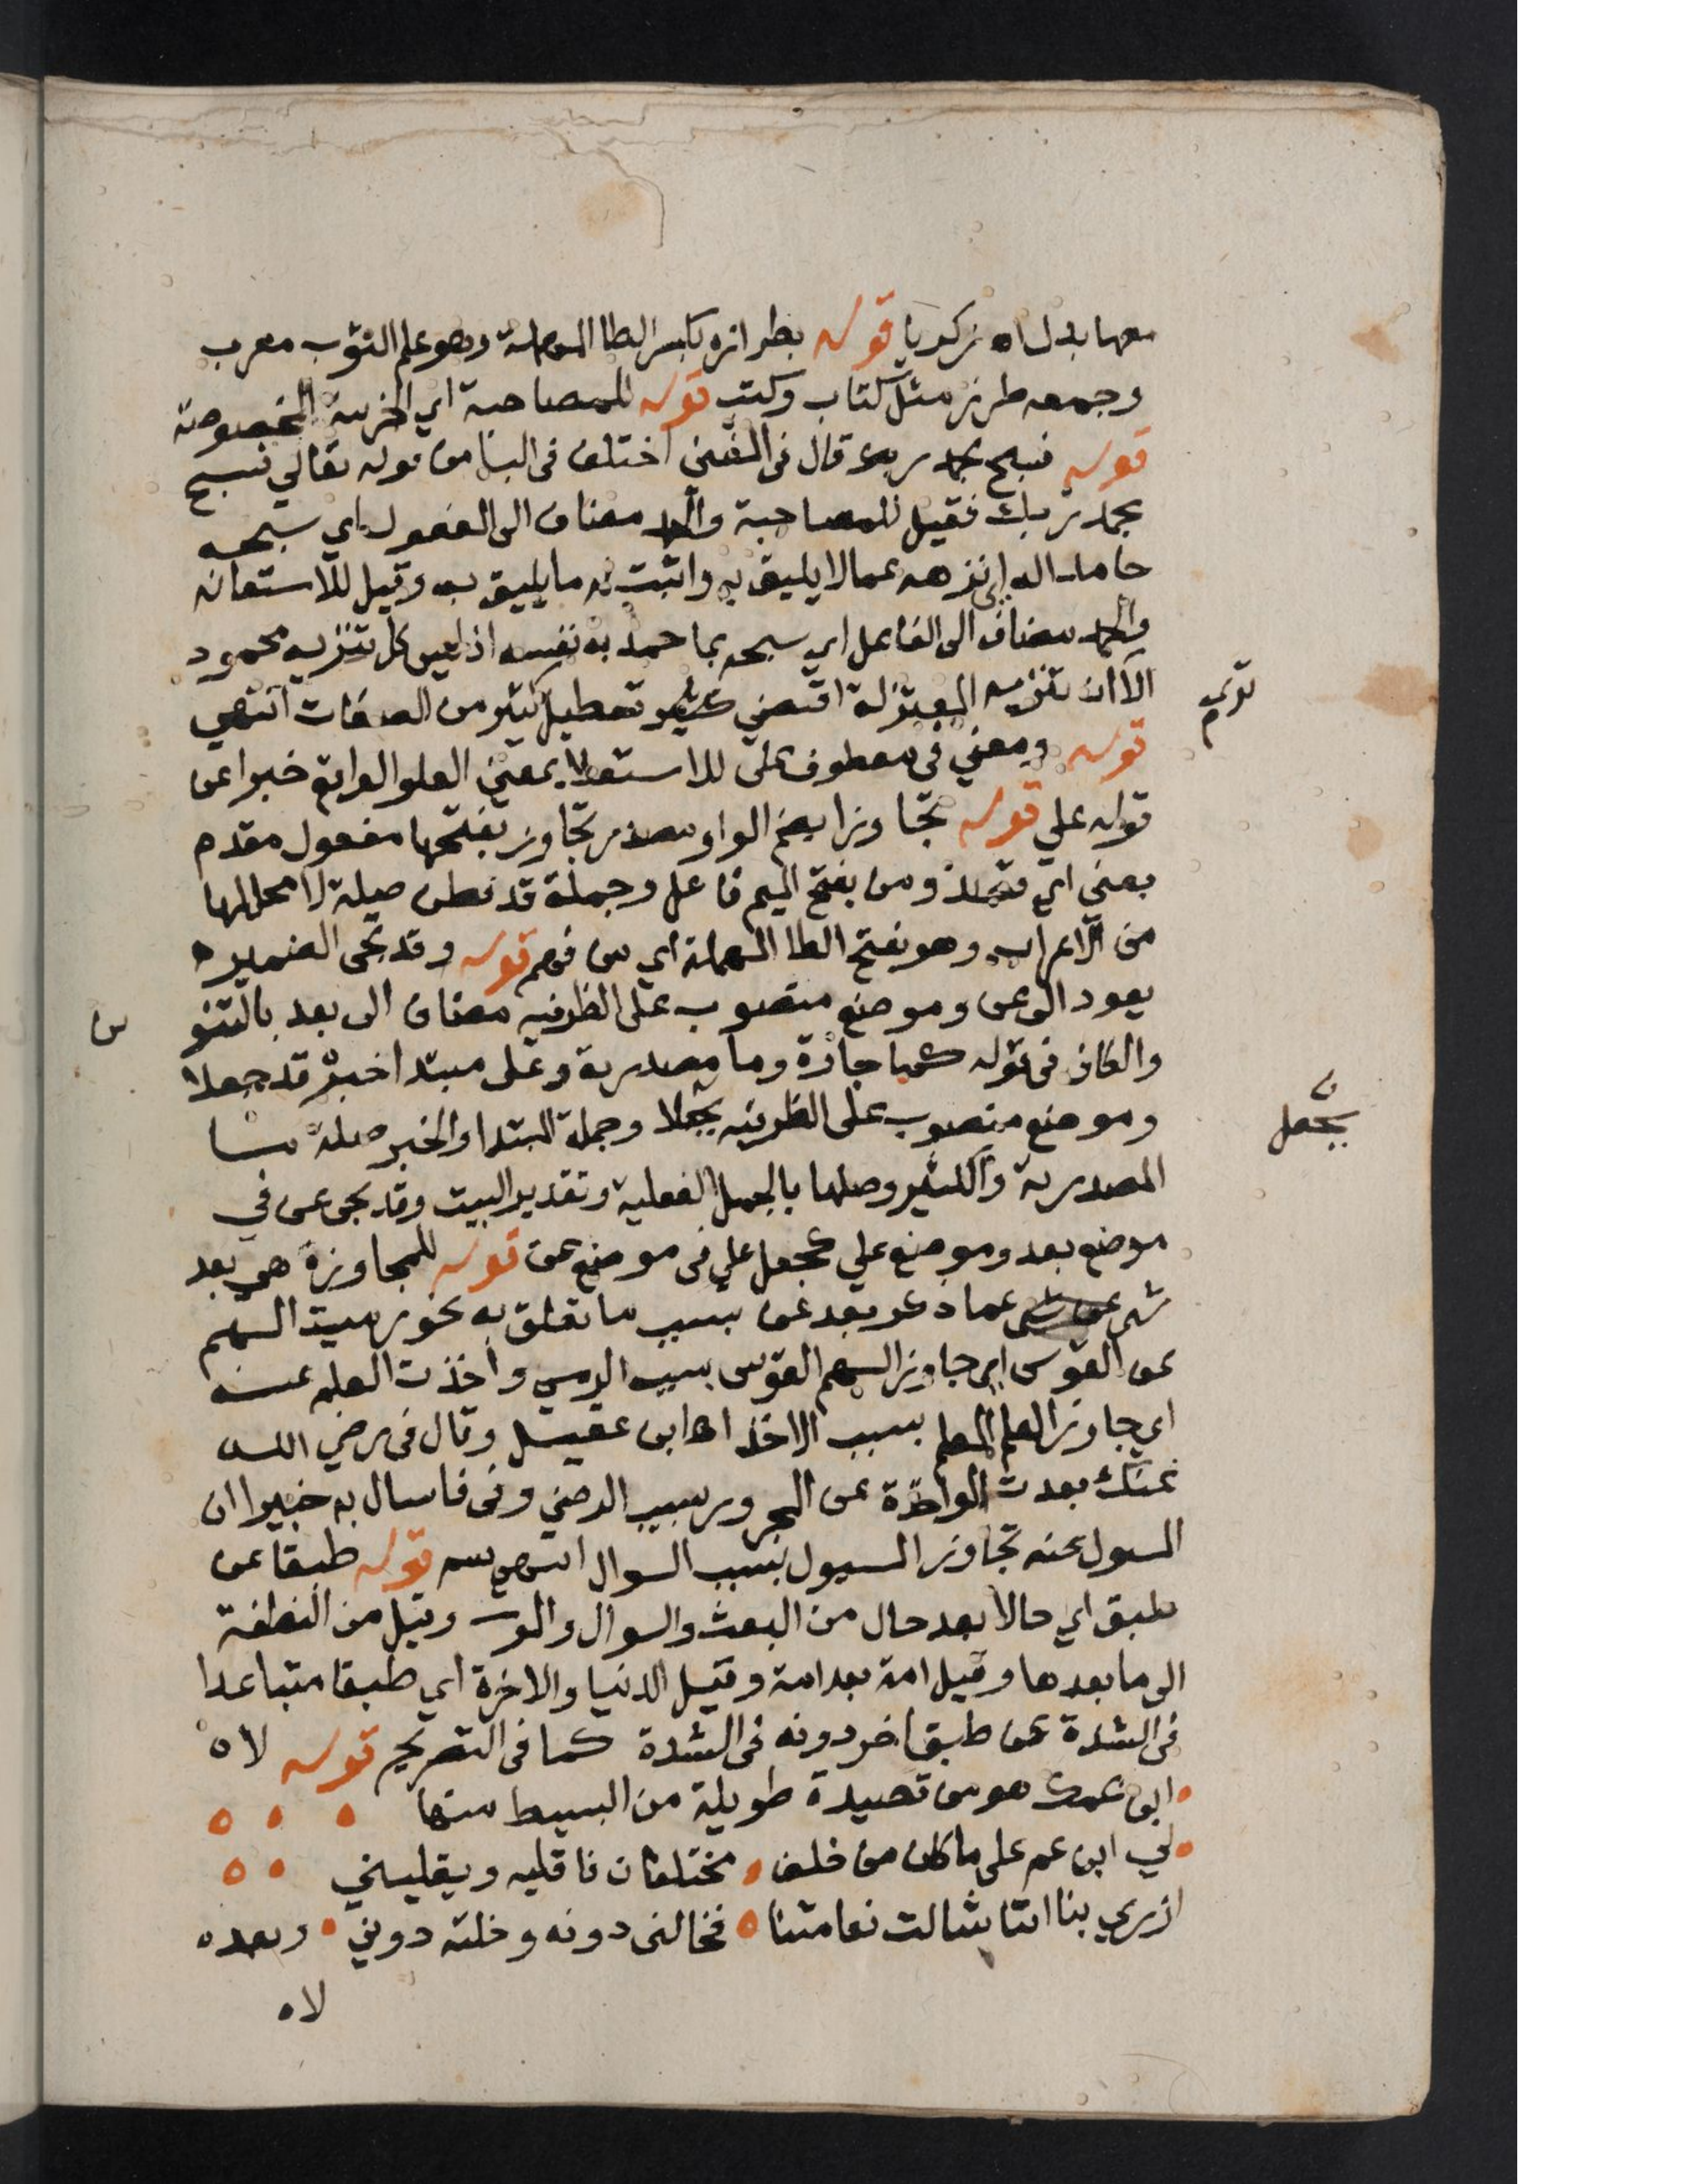 معها بدل اه زكريا قوله بطرازه بكسر الطا المهملة وهو علم الثوب معرب
وجمعه طرز مثل كتاب وكتب قوله للمصاحبة اي المخصوصة
قوله فسبح بحمد ربك قال في المغني اختلف في البا من قوله تعالي فسبح
بحمد ربك فقيل للمصاحبة والحمد مضاف الى المفعول اي سبحه
حامدا له اي نزهه عما لا يليق به واثبت له ما يليق به وقيل للاستعانه
والحمد مضاف الى الفاعل اي سبحه بما حمد به نفسه اذ ليس كل تنزيه محمود
الا ان تنزيه المعتزلة اقتضي تعطيل كثير من الصفات انتهي
قوله ومعني في معطوف على للاستعلا بمعني العلو الواقع خبرا عن
قوله علي قوله تجاوزا بضم الواو مصدر تجاوز بفتحها مفعول مقدم
بعني اي قصد ومن بفتح الميم فاعل وجملة قد فطن صلة لا محل لها
من الاعراب وهو بفتح الطا المهملة اي من فهم قوله وقد تجى الضمير
يعود الى عن وموضع منصوب على الظرفيه مضاف الى بعد بالتنو
والكاف في قوله كما جارة وما مصدرية وعلى مبتدا خبره قد جعلا
وموضع منصوب على الظرفيه بجعلا وجملة المبتدا والخبر صلة ما
المصدرية والكثير وصلها بالجمل الفعلية وتقدير البيت وقد تجى عن في
موضع بعد وموضع علي كجعل علي في موضع عن قوله للمجاوزة هي بعد
شى عما ذكر بعد عن بسبب ما تعلق به نحو رميت السهم
عن القوس اي جاوز السهم القوس بسبب الرمي واخذت العلم عنه
اي جاوز العلم المعلم بسبب الاخذ اه ابن عقيل وقال في رضي الله
عنك بعدت المواخذة عن المجرور بسبب الرضي وفي فاسال به خبيرا ان
المسول عنه تجاوز المسيول بسبب السوال انتهي قوله طبقا عن
طبق اي حالا بعد حال من البعث والسوال والموت وقيل من النطفة
الى ما بعدها وقيل امة بعد امة وقيل الدنيا والاخرة اي طبقا متباعدا
في الشدة عن طبق اخر دونه في الشدة كما في التصريح قوله لاه
ابن عمك هو من قصيدة طويلة من البسيط منها
لي ابن عم على ما كان من خلف مختلفان فاقليه ويقليني
ازري بنا اننا شالت نعامتنا فخالني دونه وخلته دوني وبعده
لاه
ن
يجعل